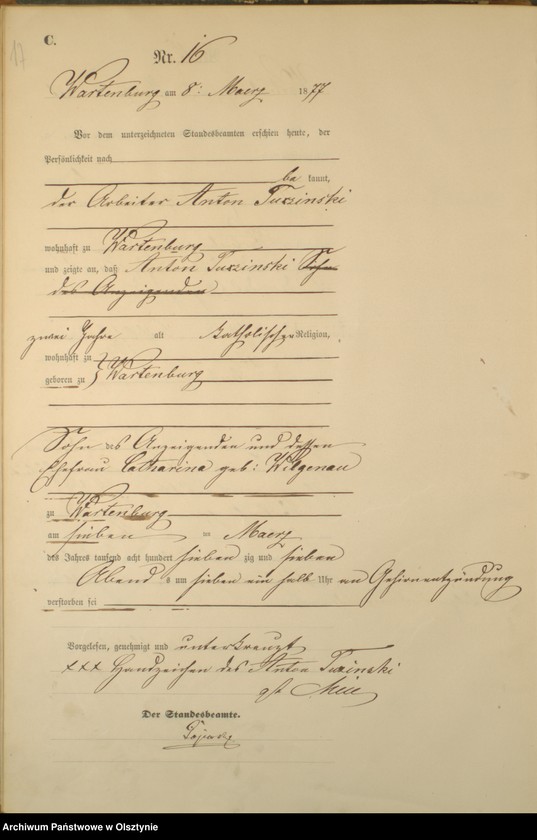 17
C.
Nr. 16
Wartenburg am 8: Maerz 1877
Vor dem unterzeichneten Standesbeamten erschien heute, der
Persönlichkeit nach
be kannt,
der Arbeiter Anton Turzinski
wohnhaft zu Wartenburg
und zeigte an, daß Anton Turzinski Sohn
des Anzeigenden
zwei Jahre alt katholischer Religion,
wohnhaft zu
geboren zu Wartenburg
Sohn des Anzeigenden und dessen
Ehefrau Catharina geb: Wilgenau
zu Wartenburg
am sieben ten Maerz
des Jahres tausend acht hundert sieben zig und sieben
Abend s um sieben ein halb Uhr an Gehirnentzündung
verstorben sei
Vorgelesen, genehmigt und unterkreuzt
+++ Handzeichen des Anton Turzinski
Der Standesbeamte.
Archiwum Państwowe w Olsztynie